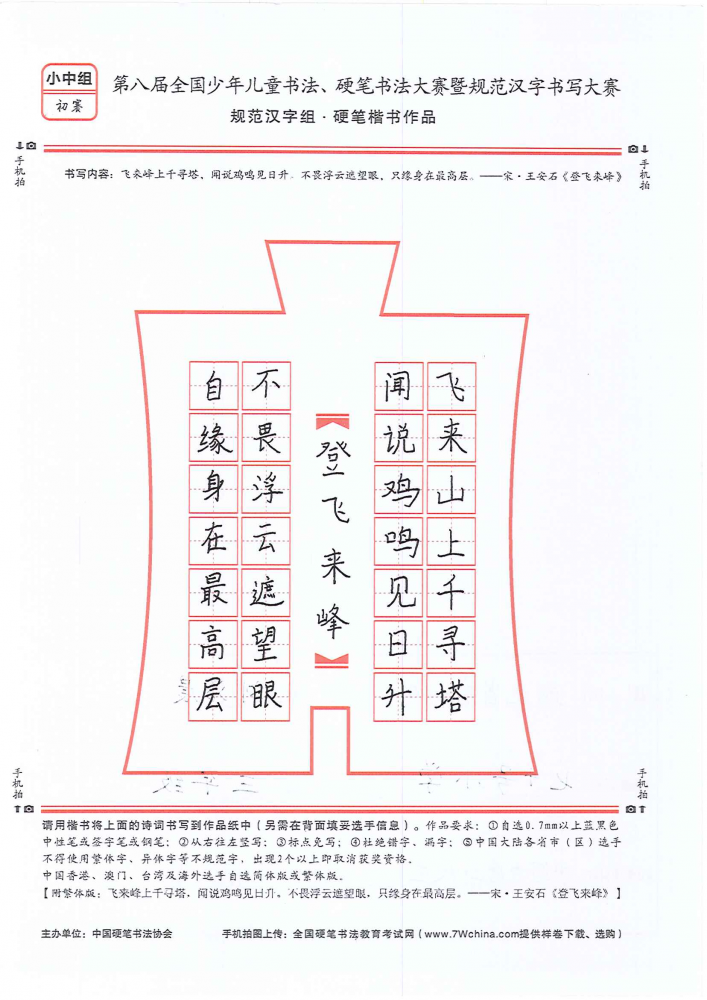 小中组
初赛
第八届全国少年儿童书法、硬笔书法大赛暨规范汉字书写大赛
规范汉字组·硬笔楷书作品
手机拍
手机拍
书写内容：飞来峰上千寻塔，闻说鸡鸣见日升。不畏浮云遮望眼，只缘身在最高层。——宋·王安石《登飞来峰》
飞来山上千寻塔
闻说鸡鸣见日升
登飞来峰
不畏浮云遮望眼
自缘身在最高层
手机拍
手机拍
请用楷书将上面的诗词书写到作品纸中（另需在背面填妥选手信息）。作品要求：①自选0.7mm以上蓝黑色
中性笔或签字笔或钢笔；②从右往左竖写；③标点免写；④杜绝错字、漏字；⑤中国大陆各省市（区）选手
不得使用繁体字、异体字等不规范字，出现2个以上即取消获奖资格。
中国香港、澳门、台湾及海外选手自选简体版或繁体版。
【附繁体版：飞来峰上千寻塔，闻说鸡鸣见日升。不畏浮云遮望眼，只缘身在最高层。——宋·王安石《登飞来峰》】
主办单位：中国硬笔书法协会
手机拍图上传：全国硬笔书法教育考试网（www.7Wchina.com提供样卷下载、选购）